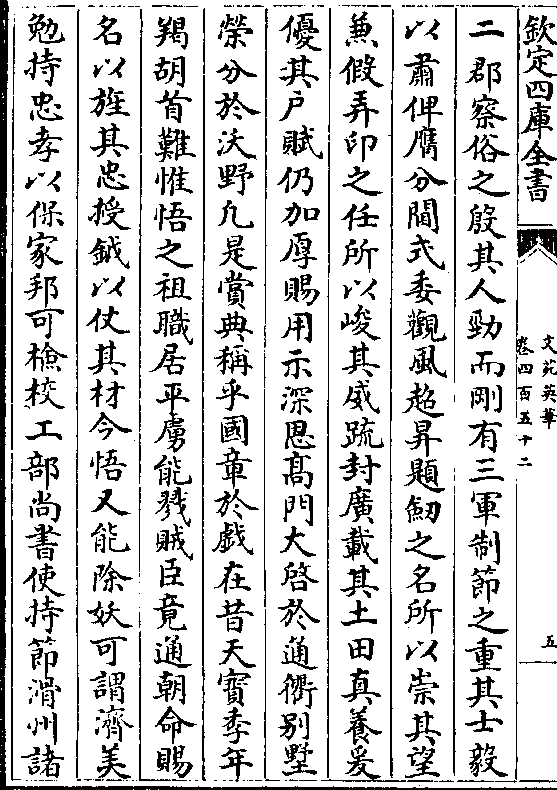 欽定四庫全書
文苑英華
卷四百五十二
五
二郡察俗之殷其人勁而剛有三軍制節之重其士毅
以肅俾膺分閫式委觀風超昇題劒之名所以崇其望
兼假弄印之任所以峻其威䟽封廣載其土田真養爰
優其户賦仍加厚賜用示深恩髙門大啓於通衢别墅
榮分於沃野凢是賞典稱乎國章於戯在昔天寳季年
羯胡首難惟悟之祖職居平虜能戮賊臣竟通朝命賜
名以旌其忠授鉞以仗其材今悟又能除妖可謂濟美
勉持忠孝以保家邦可檢校工部尚書使持節滑州諸